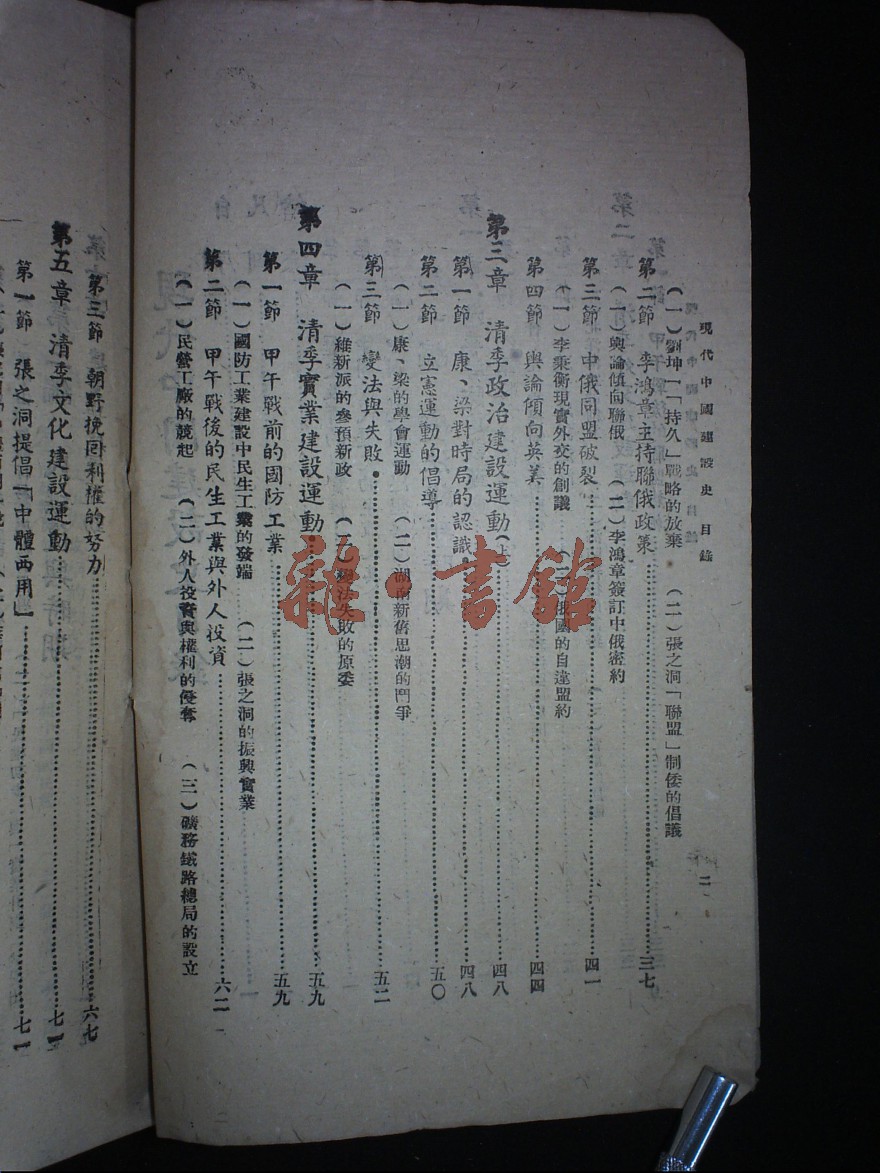 現代中國建設史 目錄
二
(一)劉坤一「持久」戰略的放棄 (二)張之洞「聯盟」制倭的倡議
第二節 李鴻章主持聯俄政策……三七
(一)輿論傾向聯俄 (二)李鴻章簽訂中俄密約
第三節 中俄同盟破裂……四一
(一)李秉衡現實外交的創議 (二)俄國的自違盟約
第四節 輿論傾向英美……四四
第三章 清季政治建設運動(上)……四八
第一節 康、梁對時局的認識……四八
第二節 立憲運動的倡導……五〇
(一)康、梁的學會運動 (二)湖南新舊思潮的鬥爭
第三節 變法與失敗……五二
(一)維新派的參預新政 (二)變法失敗的原委
第四章 清季實業建設運動……五九
第一節 甲午戰前的國防工業……五九
(一)國防工業建設中民生工業的發端 (二)張之洞的振興實業
第二節 甲午戰後的民生工業與外人投資……六二
(一)民營工廠的競起 (二)外人投資與權利的侵奪 (三)礦務鐵路總局的設立
第三節 朝野挽回利權的努力……六七
第五章 清季文化建設運動……七一
第一節 張之洞提倡「中體西用」……七一
雜·書館